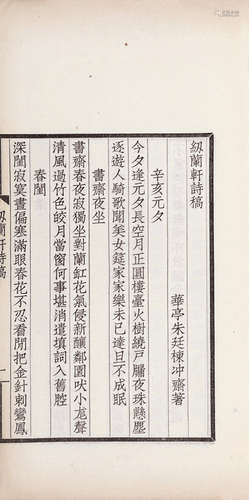 紉蘭軒詩稿
華亭朱廷棟冲齋著
辛亥元夕
今夕逢元夕長空月正圓樓臺火樹繞戶牖夜珠懸塵
逐遊人騎歌聞美女筵家家樂未已達旦不成眠
書齋夜坐
書齋春夜寂獨坐對蘭缸花氣侵新釀鄰園吠小尨聲
清風過竹色皎月當窗何事堪消遣填詞入舊腔
春閨
深閨寂寞晝偏寒滿眼春花不忍看閒把金針刺鸞鳳
紉蘭軒詩稿
一